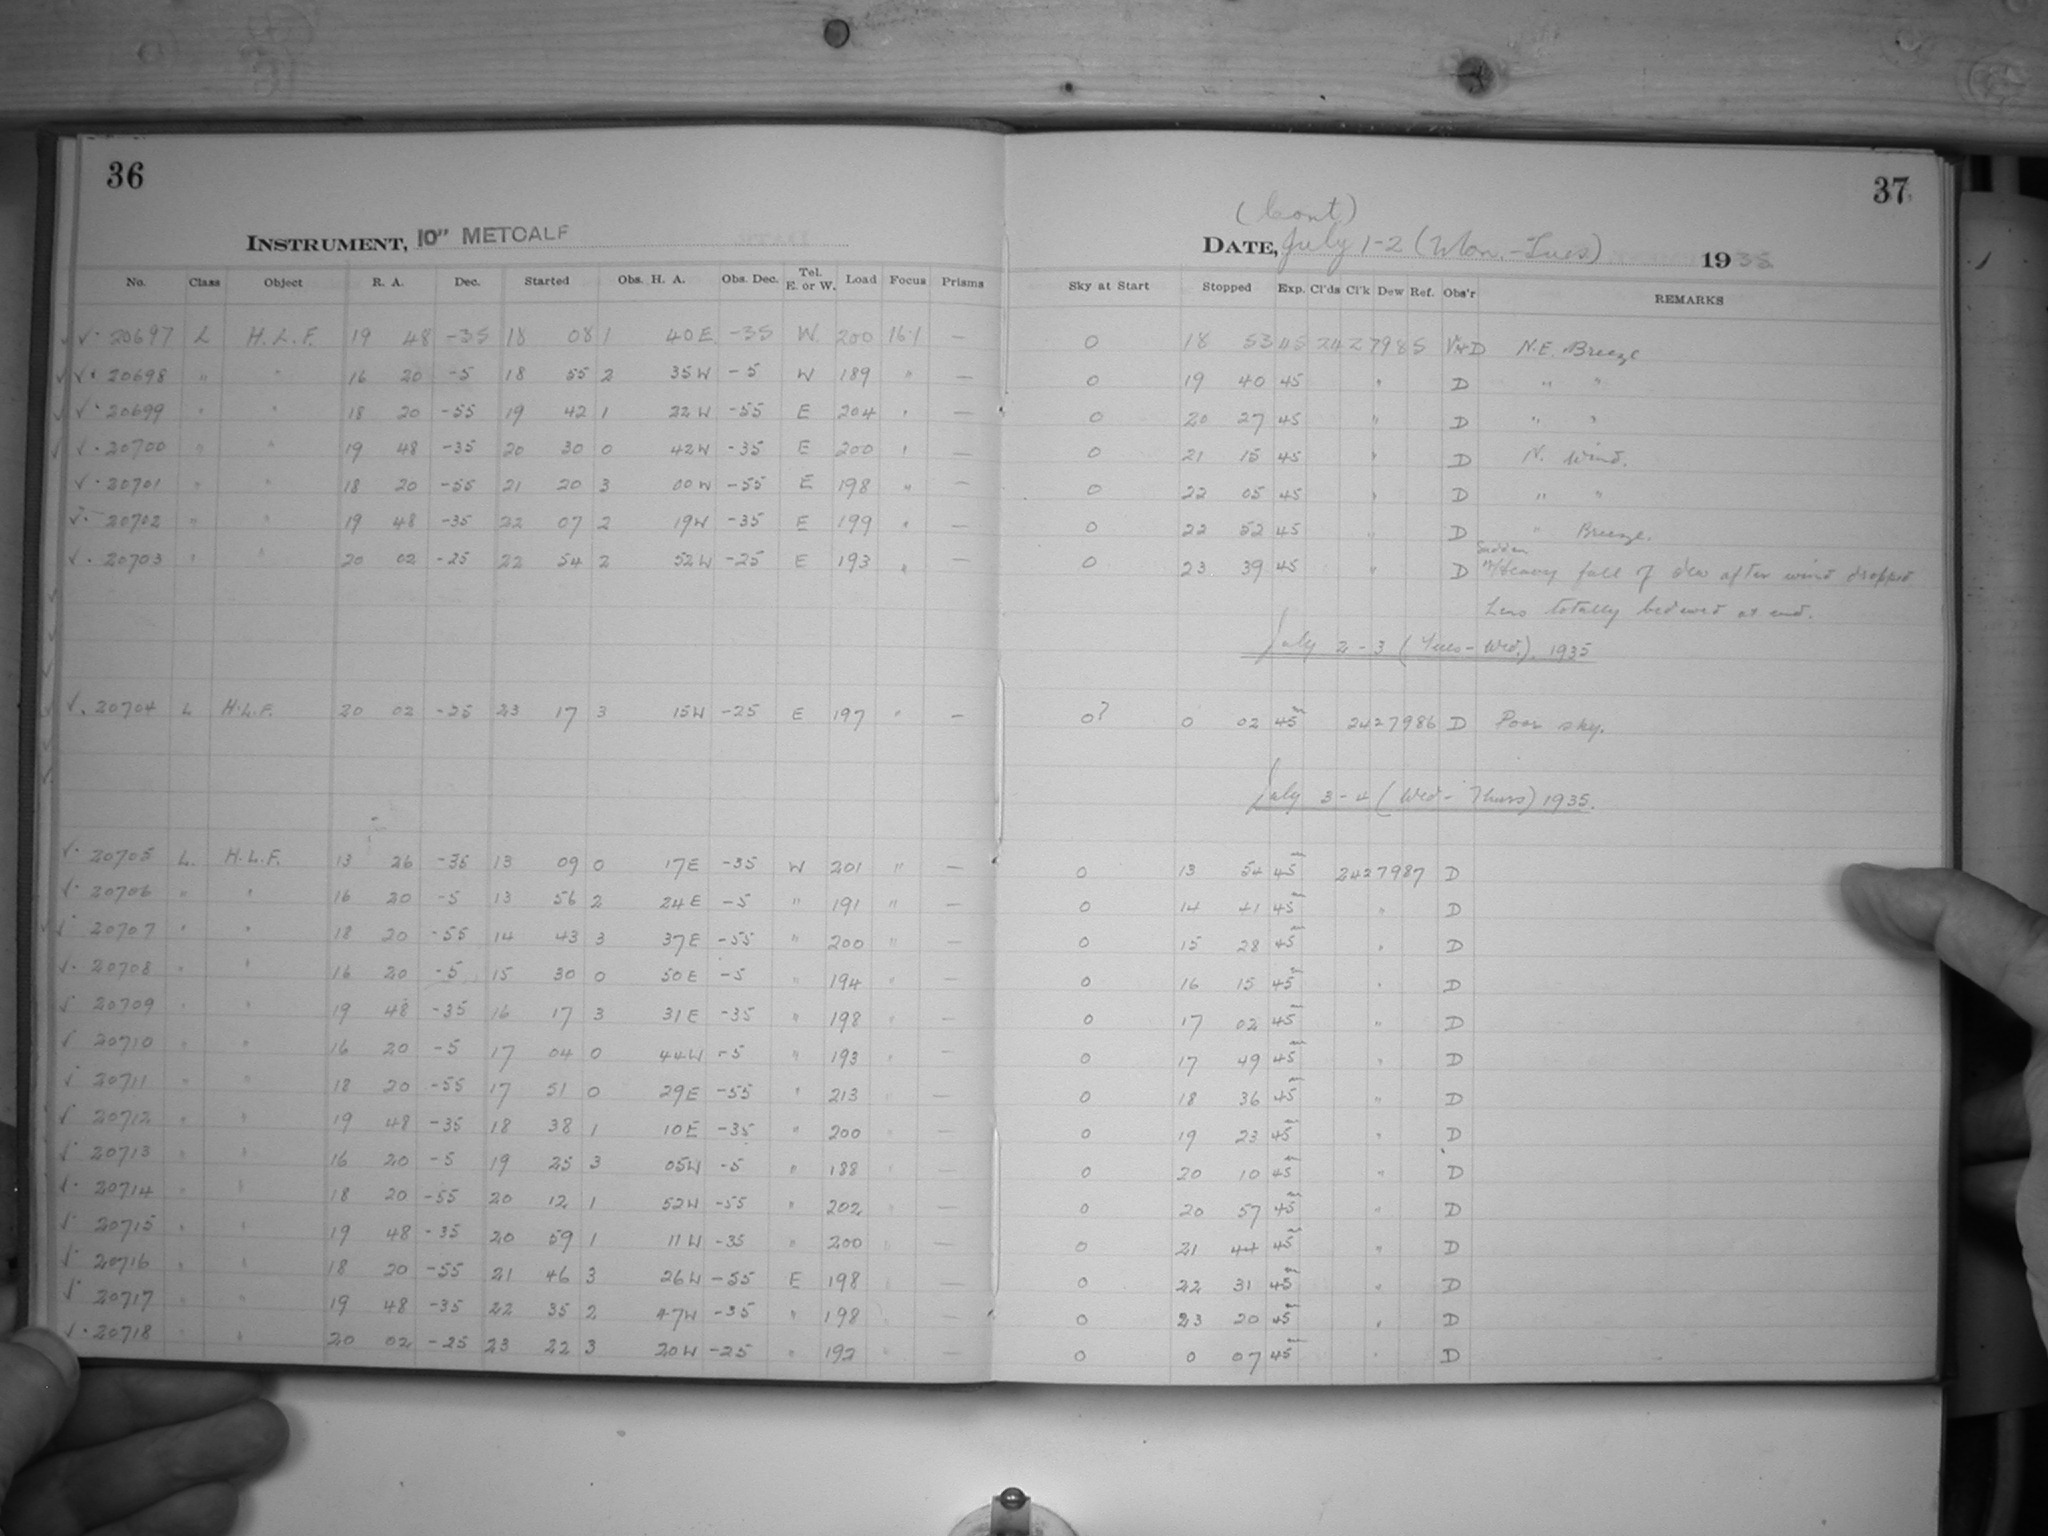 36
37
(Cont)
INSTRUMENT, 10" METCALF
DATE, July 1-2 (Mon.-Tues) 1935
No. Class Object R. A. Dec. Started Obs. H. A. Obs. Dec. Tel. E. or W. Load Focus Prisms Sky at Start Stopped Exp. Cl'ds Cl'k Dew Ref. Obs'r REMARKS
√√· 20697 L H.L.F. 19 48 -35 18 08 1 40E -35 W. 200 16.1 — 0 18 53 45 2427985 D N.E. Breeze
√√· 20698 " " 16 20 -5 18 55 2 35W -5 W 189 " — 0 19 40 45 " D " "
√√· 20699 " " 18 20 -55 19 42 1 22W -55 E 204 " — 0 20 27 45 " D " "
√√· 20700 " " 19 48 -35 20 30 0 42W -35 E 200 " — 0 21 15 45 " D N. Wind.
√· 20701 " " 18 20 -55 21 20 3 00W -55 E 198 " — 0 22 05 45 " D " "
√· 20702 " " 19 48 -35 22 07 2 19W -35 E 199 " — 0 22 52 45 " D " Breeze.
√· 20703 " " 20 02 -25 22 54 2 52W -25 E 193 " — 0 23 39 45 " D Sudden Heavy fall of dew after wind dropped
Lens totally bedewed at end.
July 2-3 (Tues-Wed.). 1935
√. 20704 L H.L.F. 20 02 -25 23 17 3 15W -25 E 197 " — 0? 0 02 45m 2427986 D Poor sky.
July 3-4 (Wed-Thurs) 1935.
√· 20705 L. H.L.F. 13 26 -35 13 09 0 17E -35 W 201 " — 0 13 54 45m 2427987 D
√· 20706 " " 16 20 -5 13 56 2 24E -5 " 191 " — 0 14 41 45m " D
√· 20707 " " 18 20 -55 14 43 3 37E -55 " 200 " — 0 15 28 45m " D
√· 20708 " " 16 20 -5 15 30 0 50E -5 " 194 " — 0 16 15 45m " D
√ 20709 " " 19 48 -35 16 17 3 31E -35 " 198 " — 0 17 02 45m " D
√ 20710 " " 16 20 -5 17 04 0 44W -5 " 193 " — 0 17 49 45m " D
√ 20711 " " 18 20 -55 17 51 0 29E -55 " 213 " — 0 18 36 45m " D
√ 20712 " " 19 48 -35 18 38 1 10E -35 " 200 " — 0 19 23 45m " D
√ 20713 " " 16 20 -5 19 25 3 05W -5 " 188 " — 0 20 10 45m " D
√· 20714 " " 18 20 -55 20 12 1 52W -55 " 202 " — 0 20 57 45m " D
√· 20715 " " 19 48 -35 20 59 1 11W -35 " 200 " — 0 21 44 45m " D
√· 20716 " " 18 20 -55 21 46 3 26W -55 E 198 " — 0 22 31 45m " D
√· 20717 " " 19 48 -35 22 35 2 47W -35 " 198 " — 0 23 20 45m " D
√· 20718 " " 20 02 -25 23 22 3 20W -25 " 192 " — 0 0 07 45m " D